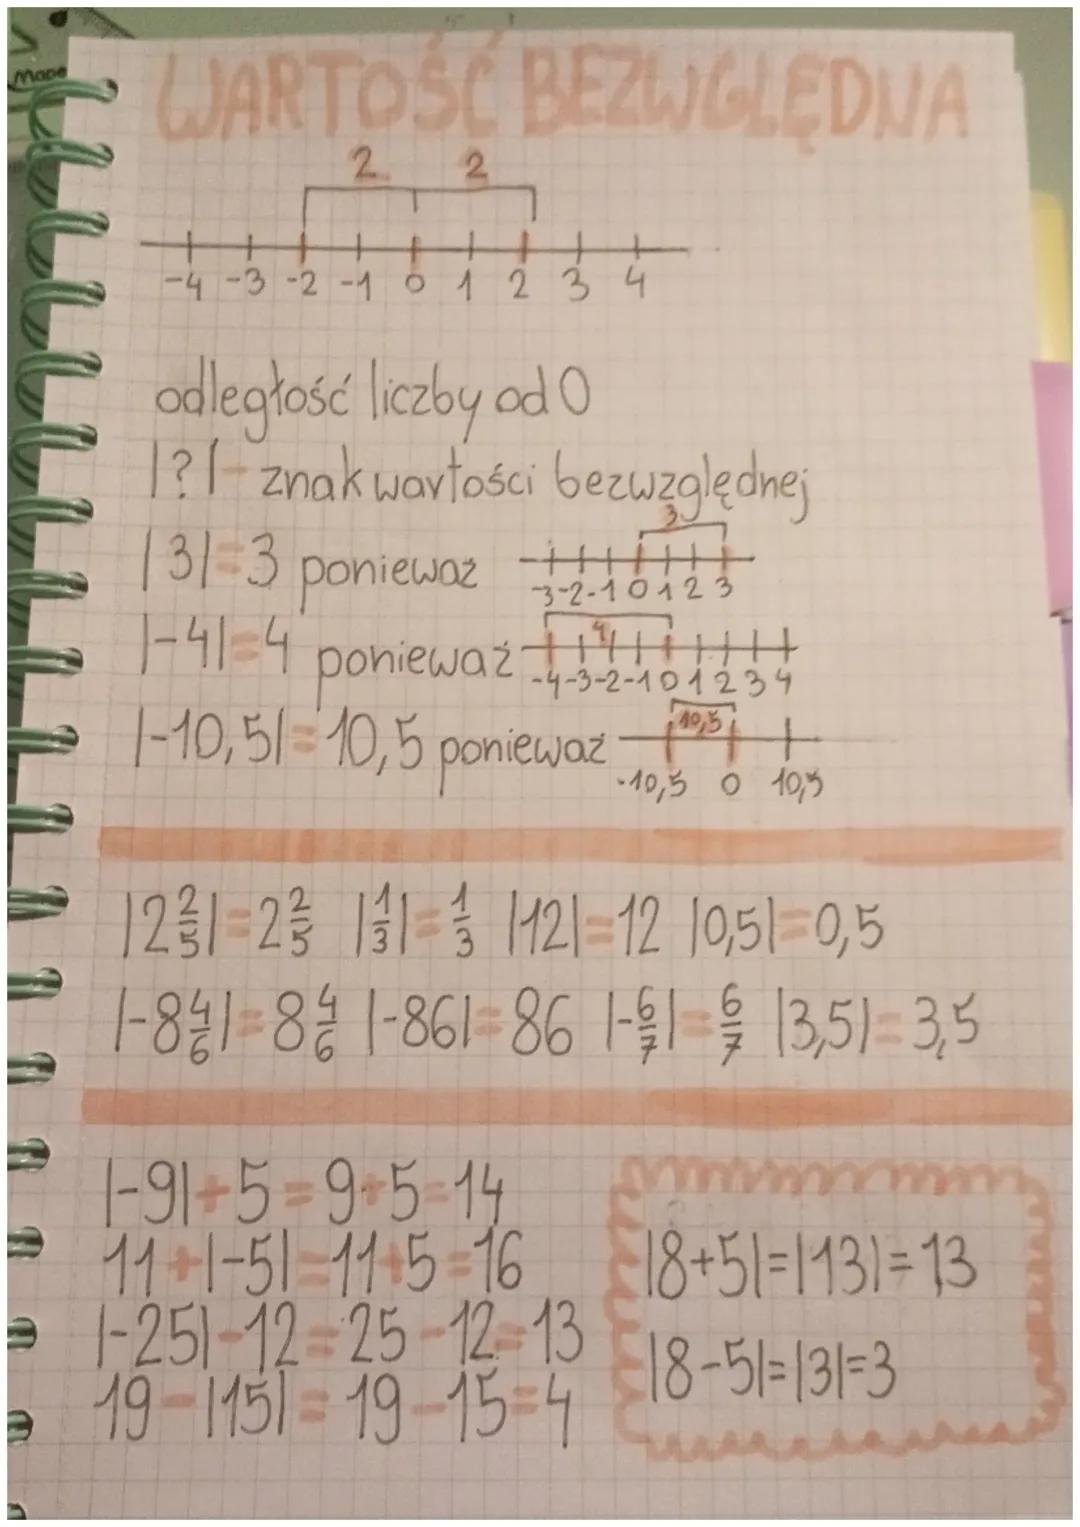 Mape
WARTOŚĆ BEZWGLĘDNA
2 2
-4 -3 -2 -1 0 1 2 3 4
odległość liczby od 0
|?| - znak wartości bezwzględnej
|3| = 3 ponieważ 3
-3 -2 -1 0 1 2 3
|-4| = 4 ponieważ 4
-4 -3 -2 -1 0 1 2 3 4
|-10,5| = 10,5 ponieważ 10,5
-10,5 0 10,5
|2 2/5| = 2 2/5 |1/3| = 1/3 |12| = 12 |0,5| = 0,5
|-8 4/6| = 8 4/6 |-86| = 86 |-6/7| = 6/7 |3,5| = 3,5
|-9| + 5 = 9 + 5 = 14
11 + |-5| = 11 + 5 = 16
|-25| - 12 = 25 - 12 = 13
19 - |15| = 19 - 15 = 4
|8+5|=|13|=13
|8-5|=|3|=3